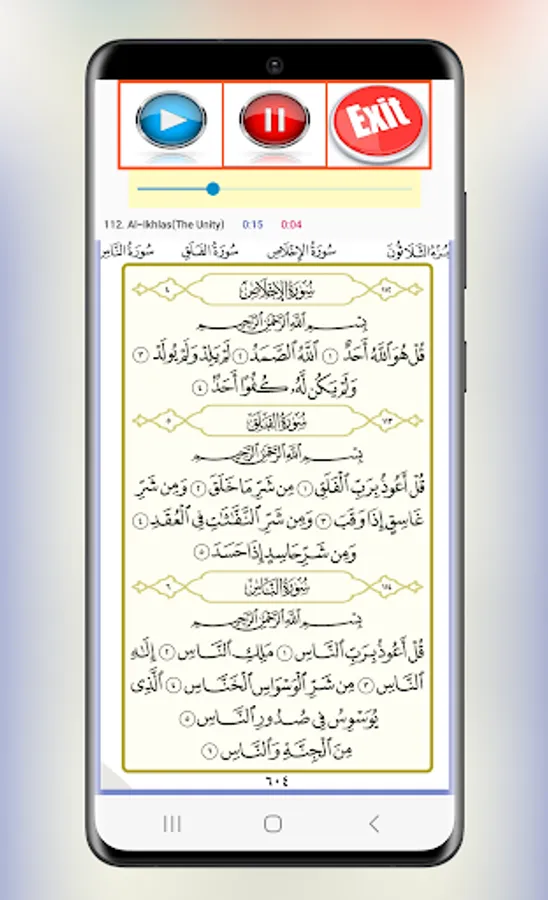 Exit
112. Al-Ikhlas(The Unity) 0:15 0:04
سُورَةُ الإِخْلَاصِ سُورَةُ الفَلَقِ سُورَةُ النَّاسِ
٤ سُورَةُ الإِخْلَاصِ ١١٢
بِسْمِ اللَّهِ الرَّحْمَٰنِ الرَّحِيمِ
قُلْ هُوَ اللَّهُ أَحَدٌ ١ اللَّهُ الصَّمَدُ ٢ لَمْ يَلِدْ وَلَمْ يُولَدْ ٣
وَلَمْ يَكُن لَّهُ كُفُوًا أَحَدٌ ٤
٥ سُورَةُ الفَلَقِ
بِسْمِ اللَّهِ الرَّحْمَٰنِ الرَّحِيمِ
قُلْ أَعُوذُ بِرَبِّ الْفَلَقِ ١ مِن شَرِّ مَا خَلَقَ ٢ وَمِن شَرِّ
غَاسِقٍ إِذَا وَقَبَ ٣ وَمِن شَرِّ النَّفَّٰثَٰتِ فِي الْعُقَدِ ٤
وَمِن شَرِّ حَاسِدٍ إِذَا حَسَدَ ٥
٦ سُورَةُ النَّاسِ ١١٤
بِسْمِ اللَّهِ الرَّحْمَٰنِ الرَّحِيمِ
قُلْ أَعُوذُ بِرَبِّ النَّاسِ ١ مَلِكِ النَّاسِ ٢ إِلَٰهِ
النَّاسِ ٣ مِن شَرِّ الْوَسْوَاسِ الْخَنَّاسِ ٤ الَّذِي
يُوَسْوِسُ فِي صُدُورِ النَّاسِ ٥
مِنَ الْجِنَّةِ وَالنَّاسِ ٦
٦٠٤